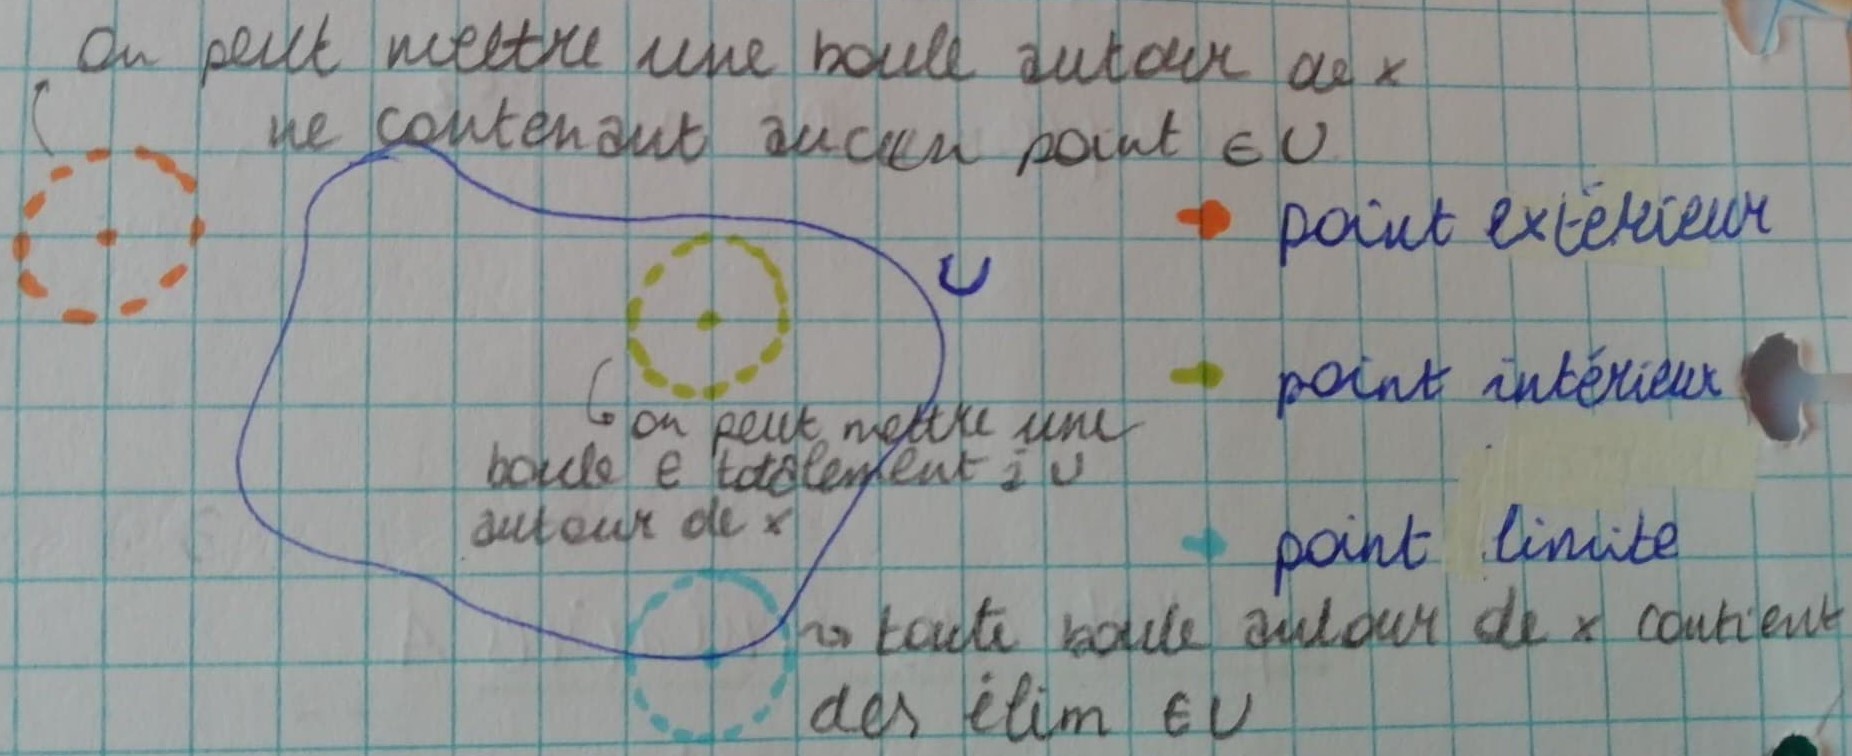 On peut mettre une boule autour de x
ne contenant aucun point ∈ U
point extérieur
U
point intérieur
on peut mettre une
boule ∈ totalement à U
autour de x
point limite
toute boule autour de x contient
des élém ∈ U